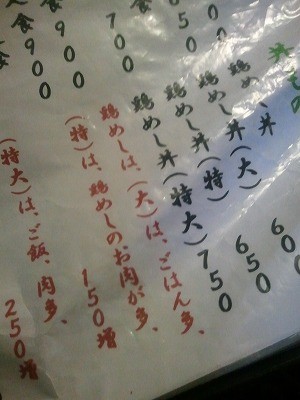 鶏めし丼(大) 600
鶏めし丼(特) 650
鶏めし丼(特大) 750
鶏めしは、(大)は、ごはん多、
(特)は、鶏めしのお肉が多、 150増
(特大)は、ご飯、肉多、 250増
650
700
食 900
食 900